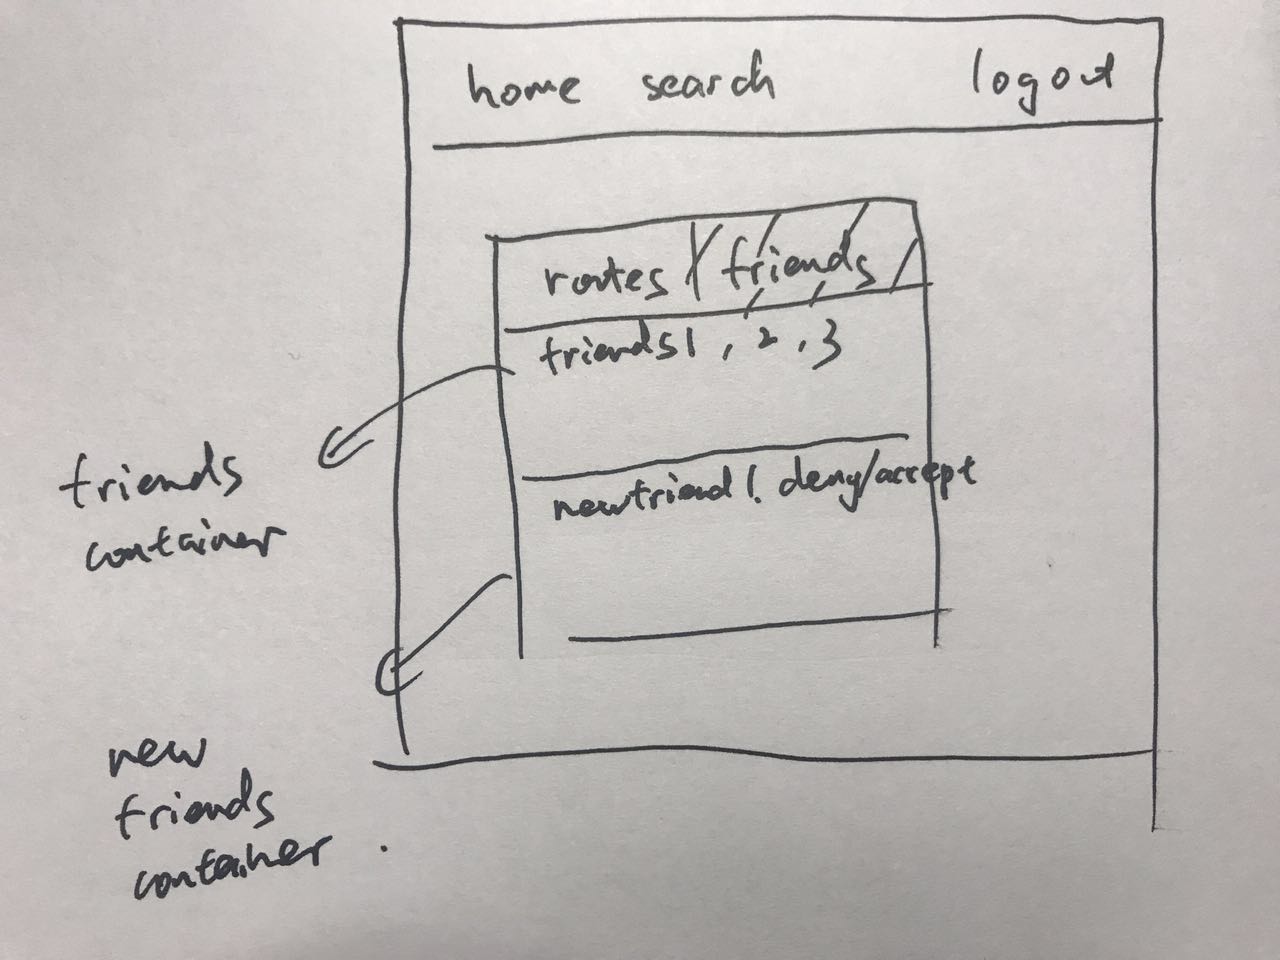 home search logout
routes / friends
friends1, 2, 3
newfriend1. deny/accept
friends
container
new
friends
container.